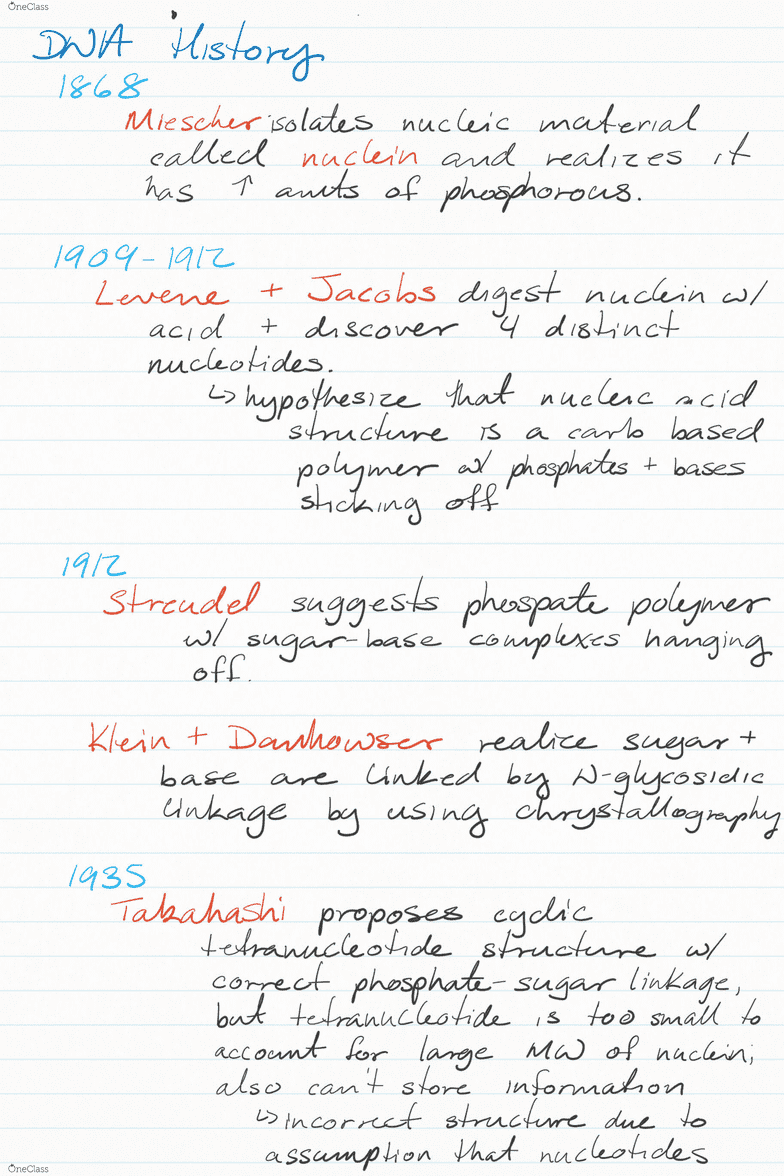 OneClass
DNA History
1868
Miescher isolates nucleic material
called nuclein and realizes it
has ↑ amts of phosphorous.
1909-1912
Levene + Jacobs digest nuclein w/
acid + discover 4 distinct
nucleotides.
↳ hypothesize that nucleic acid
structure is a carb based
polymer w/ phosphates + bases
sticking off
1912
Streudel suggests phospate polymer
w/ sugar-base complexes hanging
off.
Klein + Danhowser realize sugar +
base are linked by N-glycosidic
linkage by using chrystallography
1935
Takahashi proposes cyclic
tetranucleotide structure w/
correct phosphate-sugar linkage,
but tetranucleotide is too small to
account for large MW of nuclein;
also can't store information
↳ incorrect structure due to
assumption that nucleotides
OneClass